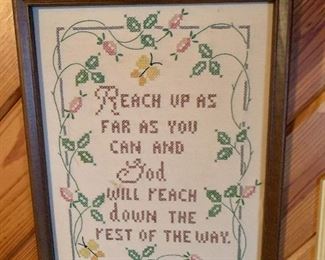 REACH UP AS
FAR AS YOU
CAN AND
God
WILL REACH
dOWN THE
REST OF THE WAY.